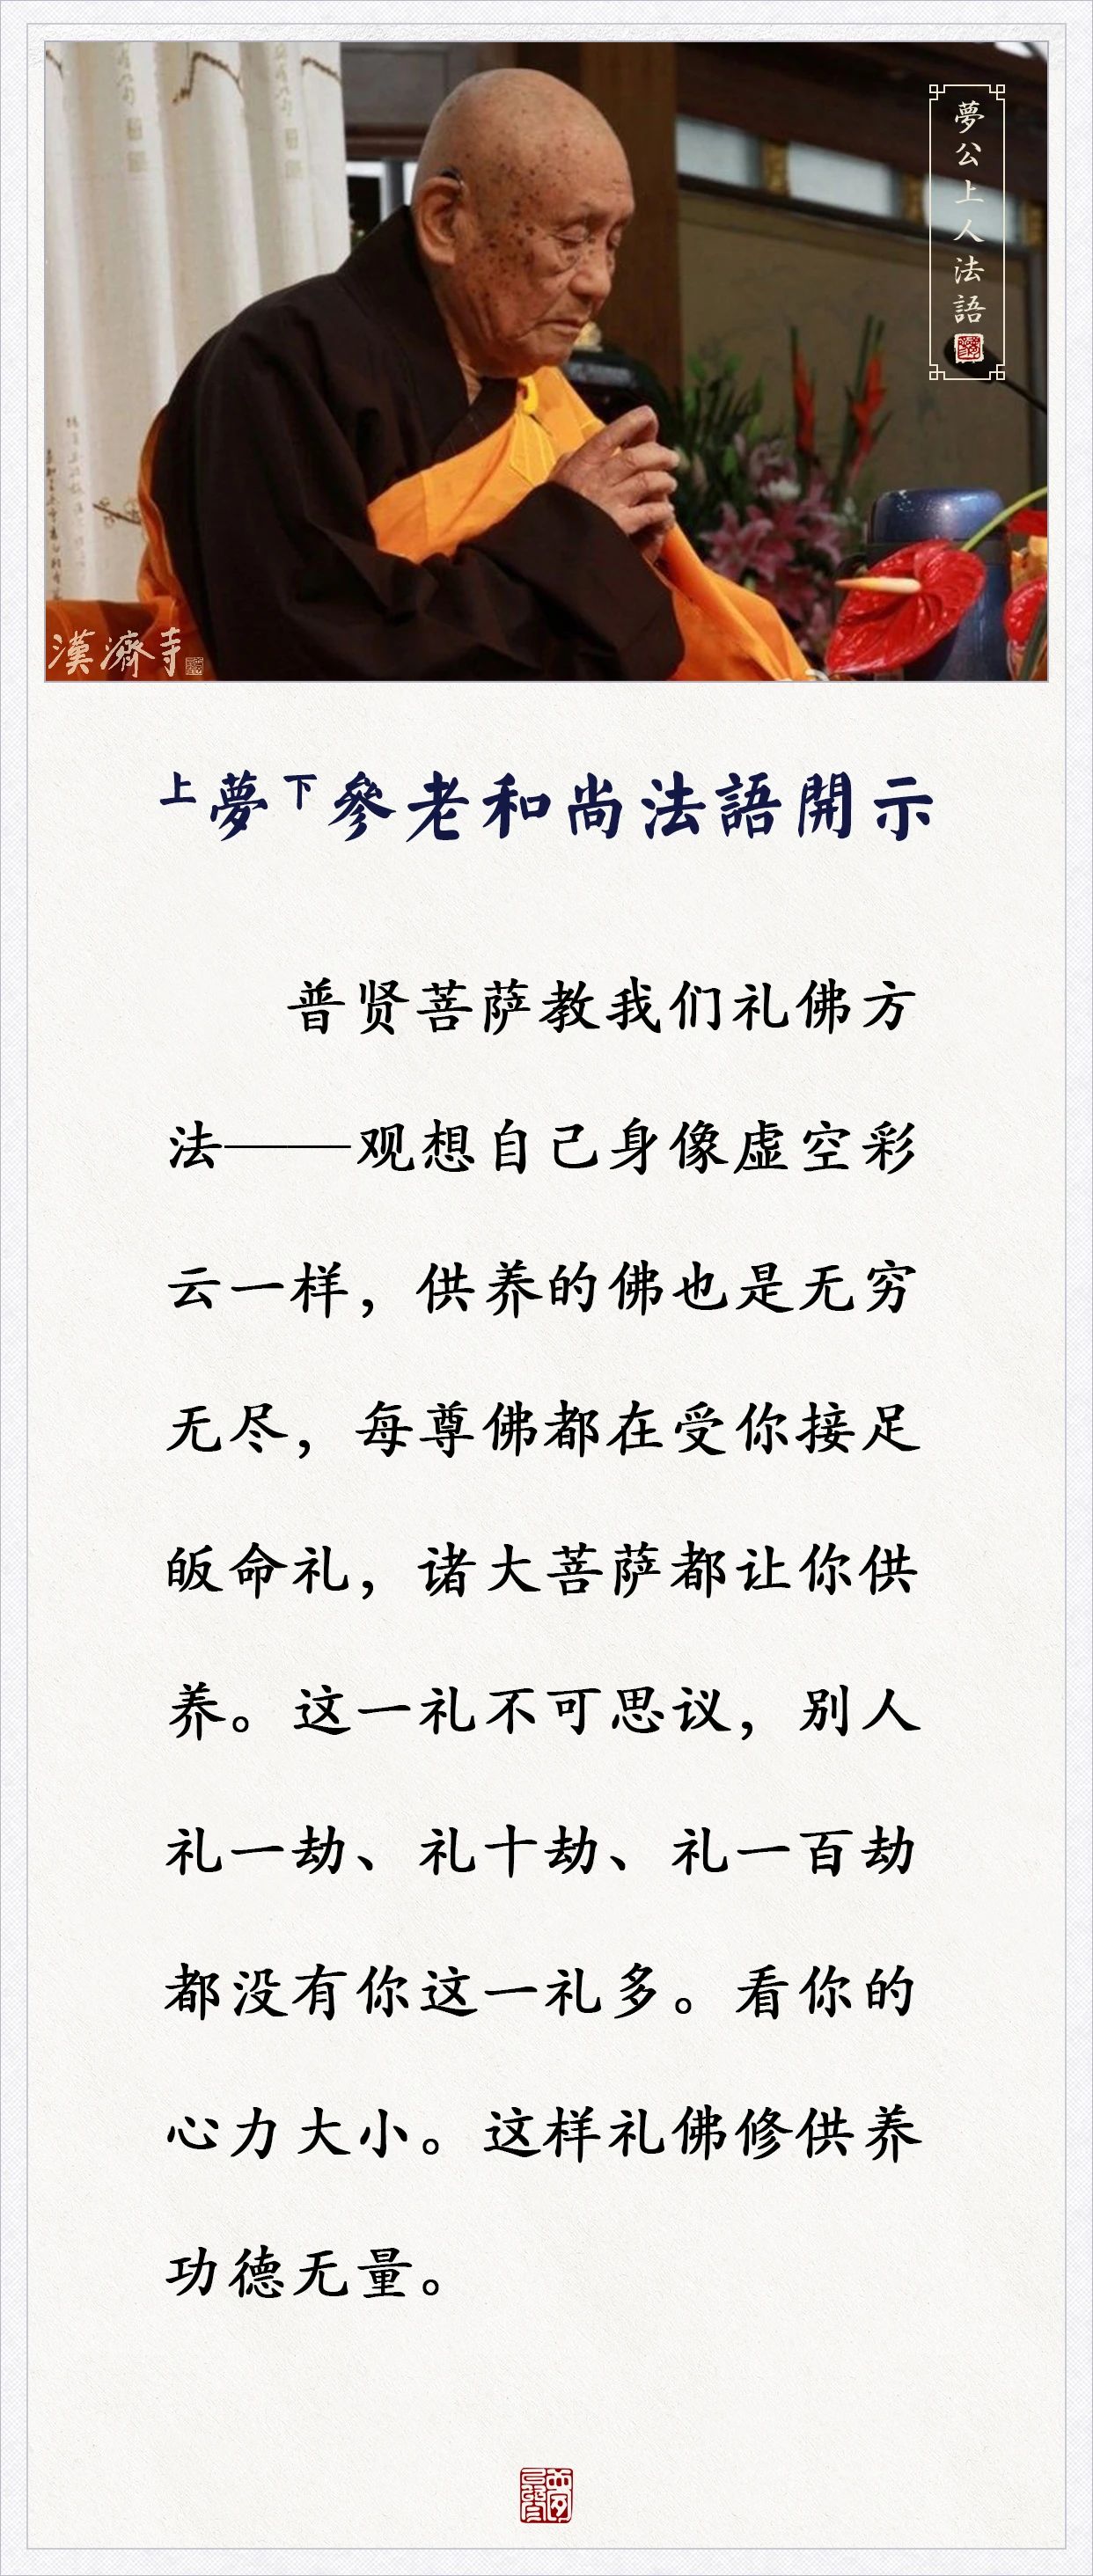 夢公上人法語
漢濟寺
上夢下參老和尚法語開示
普贤菩萨教我们礼佛方
法——观想自己身像虚空彩
云一样，供养的佛也是无穷
无尽，每尊佛都在受你接足
皈命礼，诸大菩萨都让你供
养。这一礼不可思议，别人
礼一劫、礼十劫、礼一百劫
都没有你这一礼多。看你的
心力大小。这样礼佛修供养
功德无量。